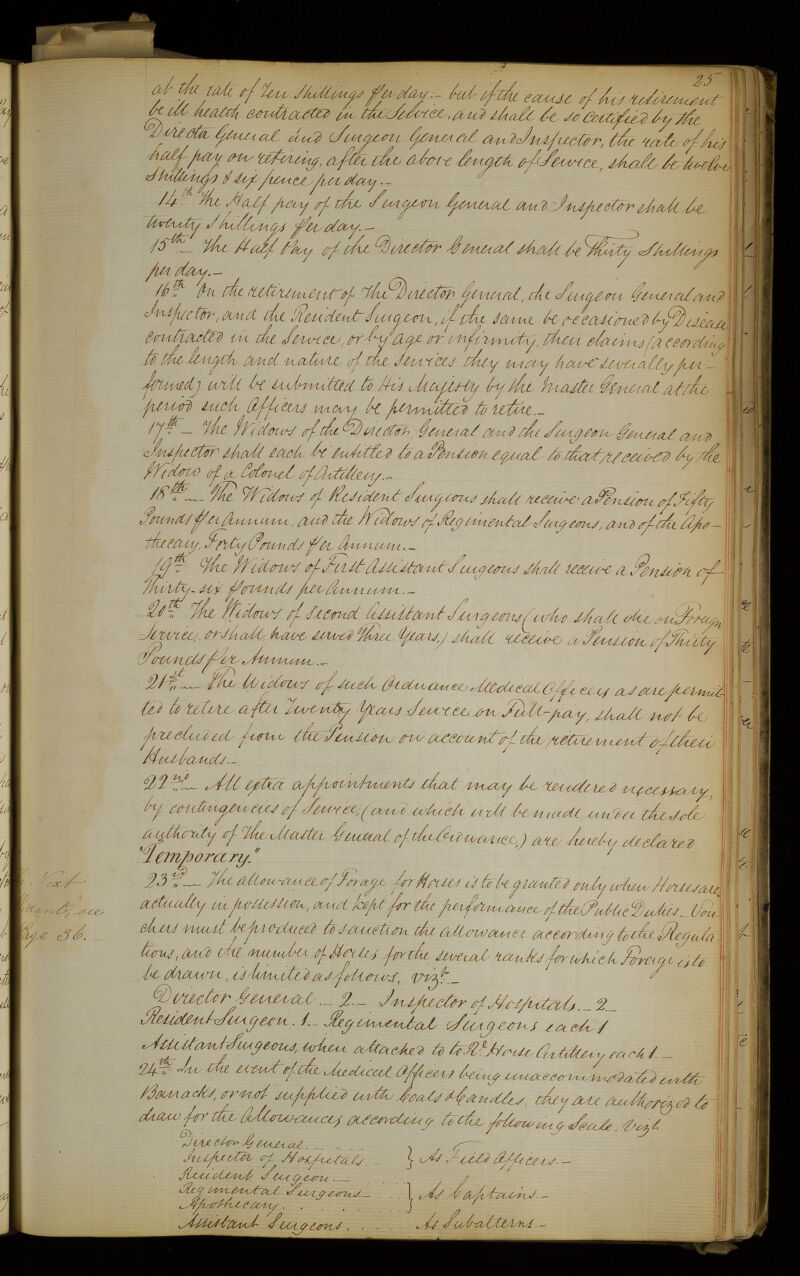 25
at the rate of Ten Shillings per day:- but if the cause of his retirement
be ill health contracted in the Service, and shall be so certified by the
Director General and Surgeon General and Inspector, the rate of his
half pay on retiring, after the above length of Service, shall be twelve
Shillings & six pence per day.-
14th The Half pay of the Surgeon General and Inspector shall be
twenty Shillings per day.-
15th - The Half Pay of the Director General shall be Thirty Shillings
per day.-
16th On the retirement of The Director General, the Surgeon General and
Inspector, and the Resident Surgeon, if the same be occasioned by Disease
contracted in the Service, or by age or infirmity, their claims (according
to the length and nature of the services they may have severally per-
formed) will be submitted to His Majesty by the Master General at the
period such Officers may be permitted to retire.-
17th - The Widows of the Director General and the Surgeon General and
Inspector shall each be entitled to a Pension equal to that received by the
Widow of a Colonel of Artillery.-
18th - The Widows of Resident Surgeons shall receive a Pension of Fifty
Pounds per Annum, and the Widows of Regimental Surgeons, and of the Apo-
thecary, Forty Pounds per Annum.-
19th The Widows of First Assistant Surgeons shall receive a Pension of
Thirty-six pounds per Annum.-
20th The Widows of Second Assistant Surgeons (who shall die on Foreign
Service, or shall have served Three Years,) shall receive a Pension of Thirty
Pounds per Annum.-
21st - The Widows of such Ordnance Medical Officers as are permit-
ted to retire after Twenty Years Service on Full-pay, shall not be
precluded from the Pension on account of the retirement of their
Husbands.-
22nd - All extra appointments that may be rendered necessary,
by contingencies of Service, (and which will be made under the sole
authority of The Master General of the Ordnance,) are hereby declared
"Temporary."
23rd - The allowance of Forage for Horses is to be granted only when Horses are
actually in possession, and kept for the performance of the Public Duties - Vou-
chers must be produced to sanction the allowance according to the Regula
tions, and the number of Horses for the several ranks for which Forage is to
be drawn, is limited as follows, vizt.-
Director General - 2 - Inspector of Hospitals - 2 -
Resident Surgeon. 1. - Regimental Surgeons each 1
Assistant Surgeons, when attached to to Rl. Horse Artillery each 1. -
24th In the event of the Medical Officers being unaccommodated with
Barracks, or not supplied with Coals & Candles, they are authorized to
draw for the Allowances according to the following Scale. Vizt
Director General
Inspector of Hospitals - } As Field Officers.-
Resident Surgeon.-
Regimental Surgeons - } As Captains.-
Apothecary.
Assistant Surgeons. As Subalterns.-
Next
see
Page 36. -